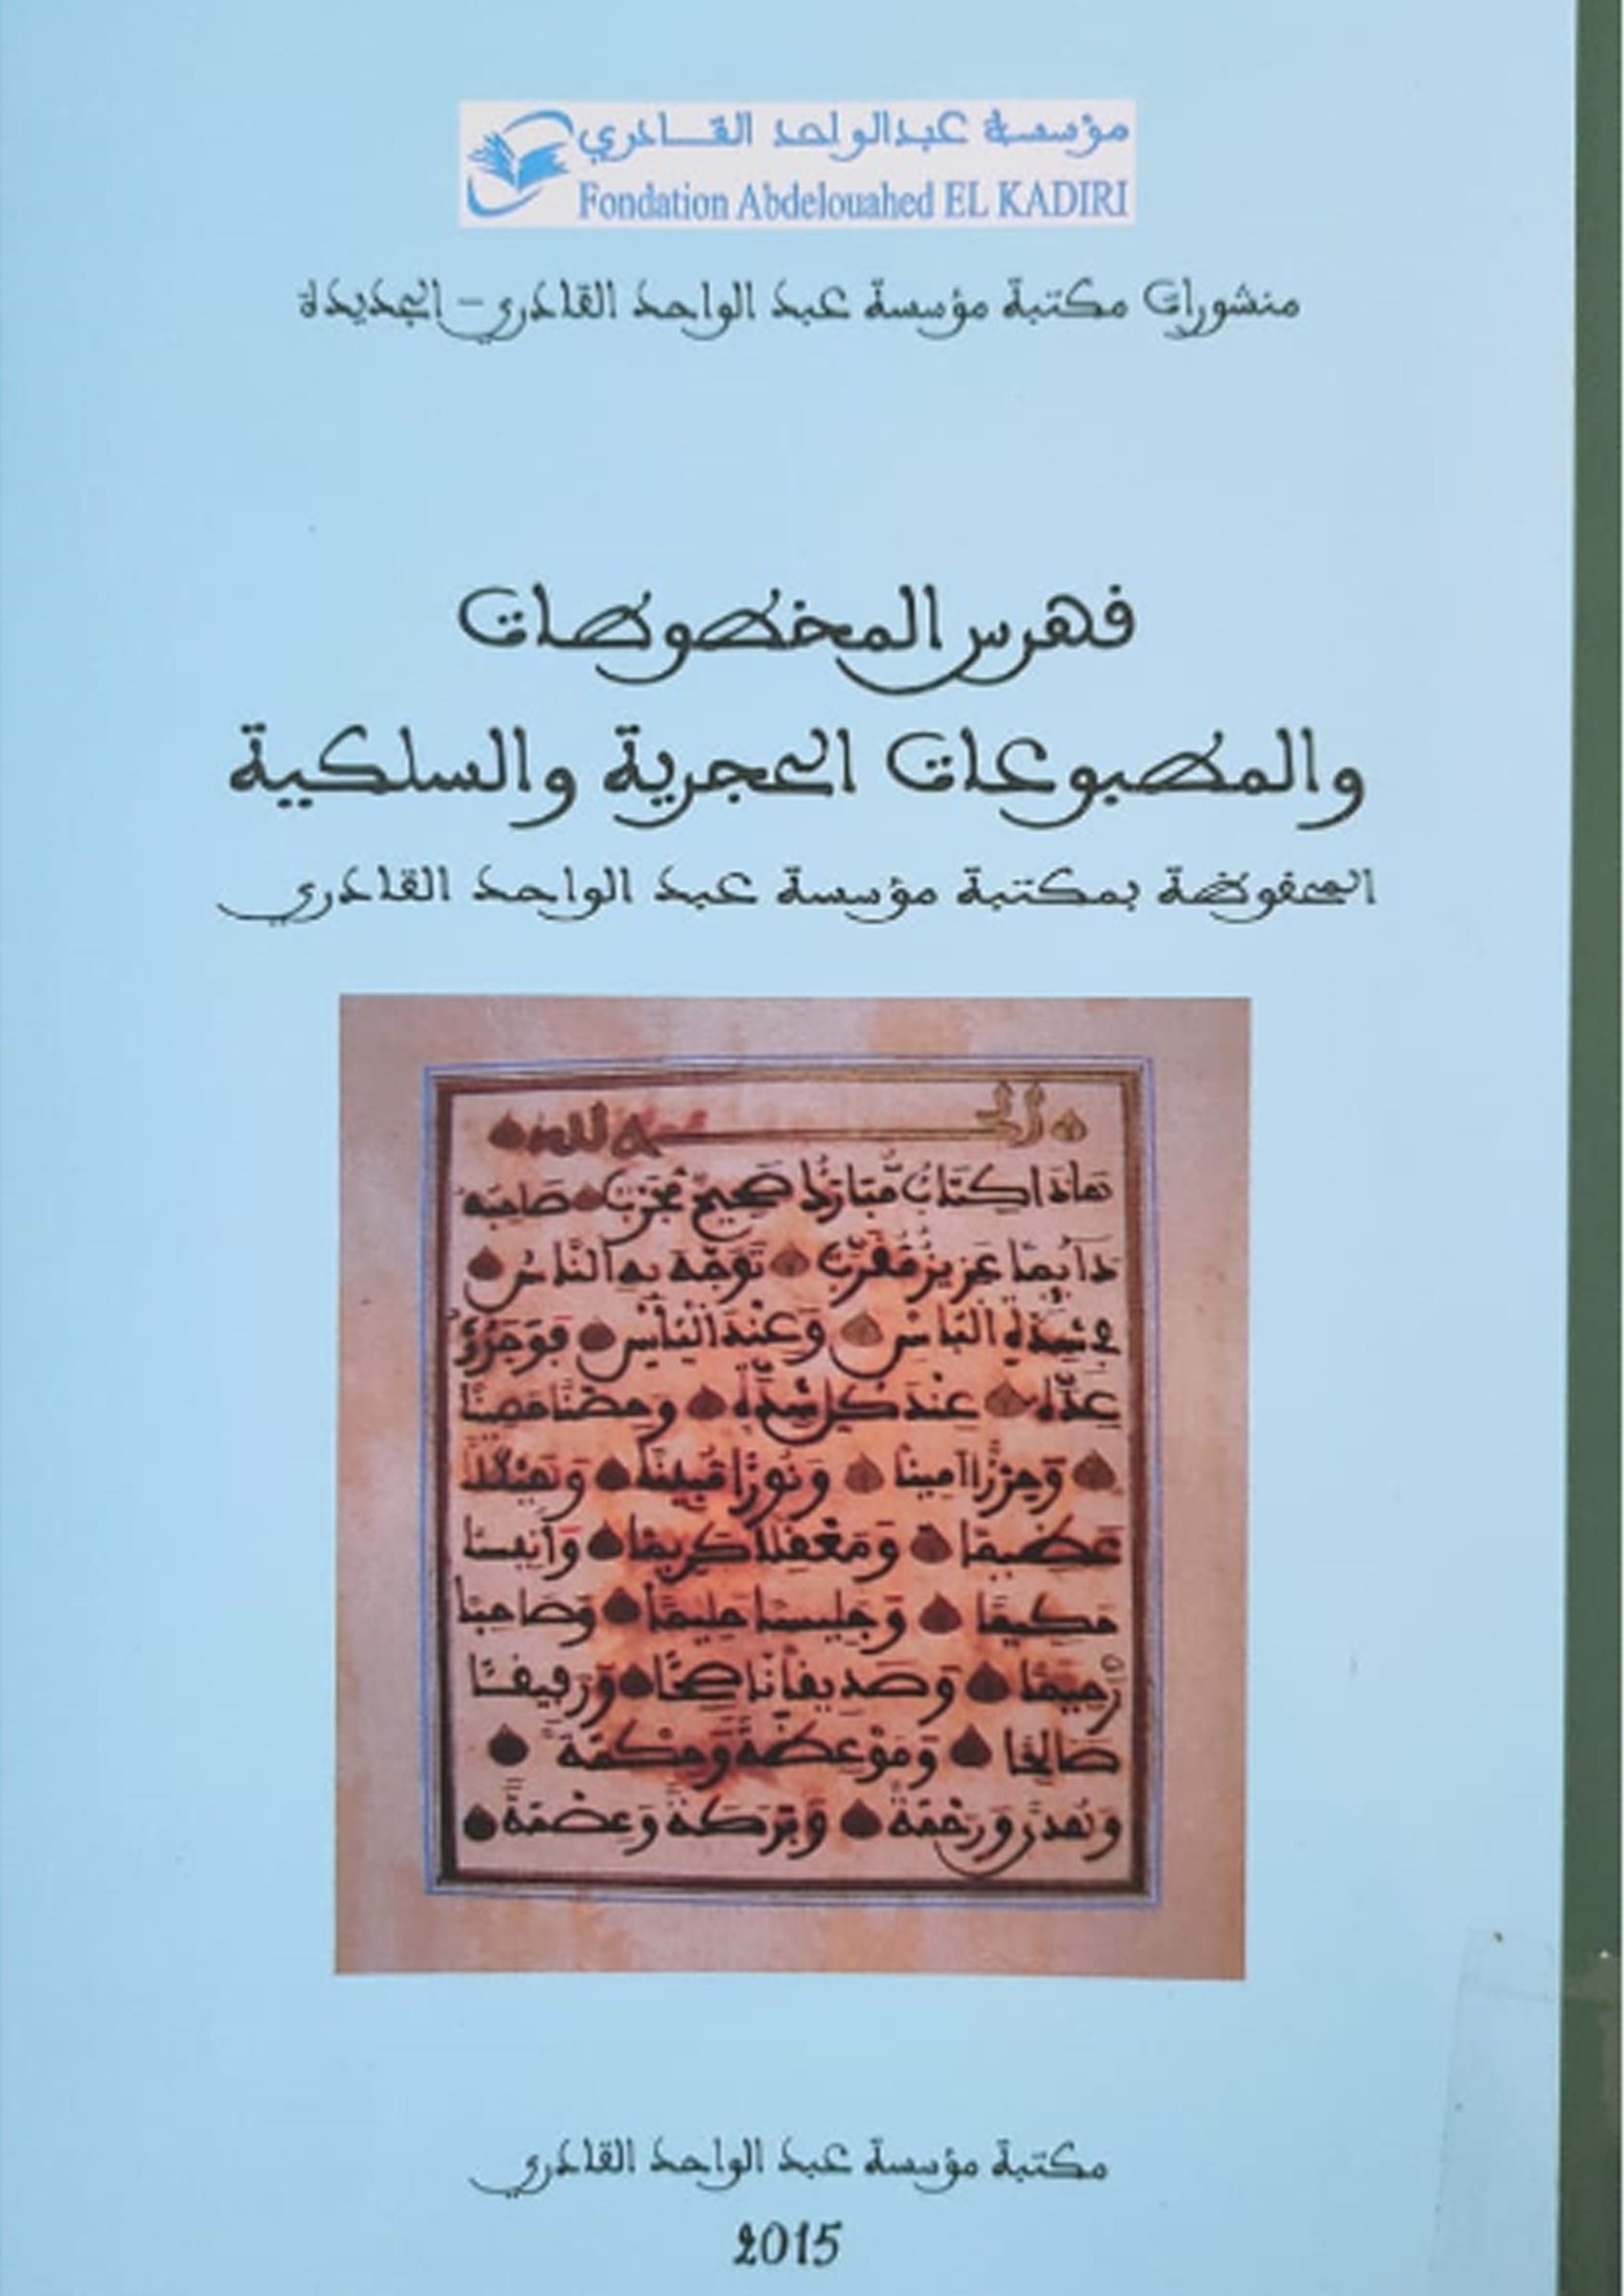 مؤسسة عبدالواحد القادري
Fondation Abdelouahed EL KADIRI
منشورات مكتبة مؤسسة عبد الواحد القادري - الجديدة
فهرس المخطوطات
والمطبوعات الحجرية والسلكية
المحفوظة بمكتبة مؤسسة عبد الواحد القادري
الحمد لله
هَاذَا كِتَابٌ مُّبَارَكٌ صَحِيحٌ مُجَرَّبٌ صَاحِبُهُ
دَآئِمًا عَزِيزٌ مُقَرَّبٌ تَوَجَّهَ بِهِ النَّاسُ
فِي شِدَّةِ الْبَأْسِ وَعِنْدَ الْيَأْسِ
عِدَّة عِنْدَ كُلِّ شِدَّةٍ وَحِصْنًا حَصِينًا
وَحِرْزًا أَمِينًا وَنُورًا مُّبِينًا وَهَيْكَلًا
عَظِيمًا وَمَعْقِلًا كَرِيمًا وَأَنِيسًا
حَكِيمًا وَجَلِيسًا حَلِيمًا وَصَاحِبًا
رَحِيمًا وَصَدِيقًا نَاصِحًا وَرَفِيقًا
صَالِحًا وَمَوْعِظَةً وَحِكْمَةً
وَهُدًى وَرَحْمَةً وَبَرَكَةً وَعِصْمَةً
مكتبة مؤسسة عبد الواحد القادري
2015